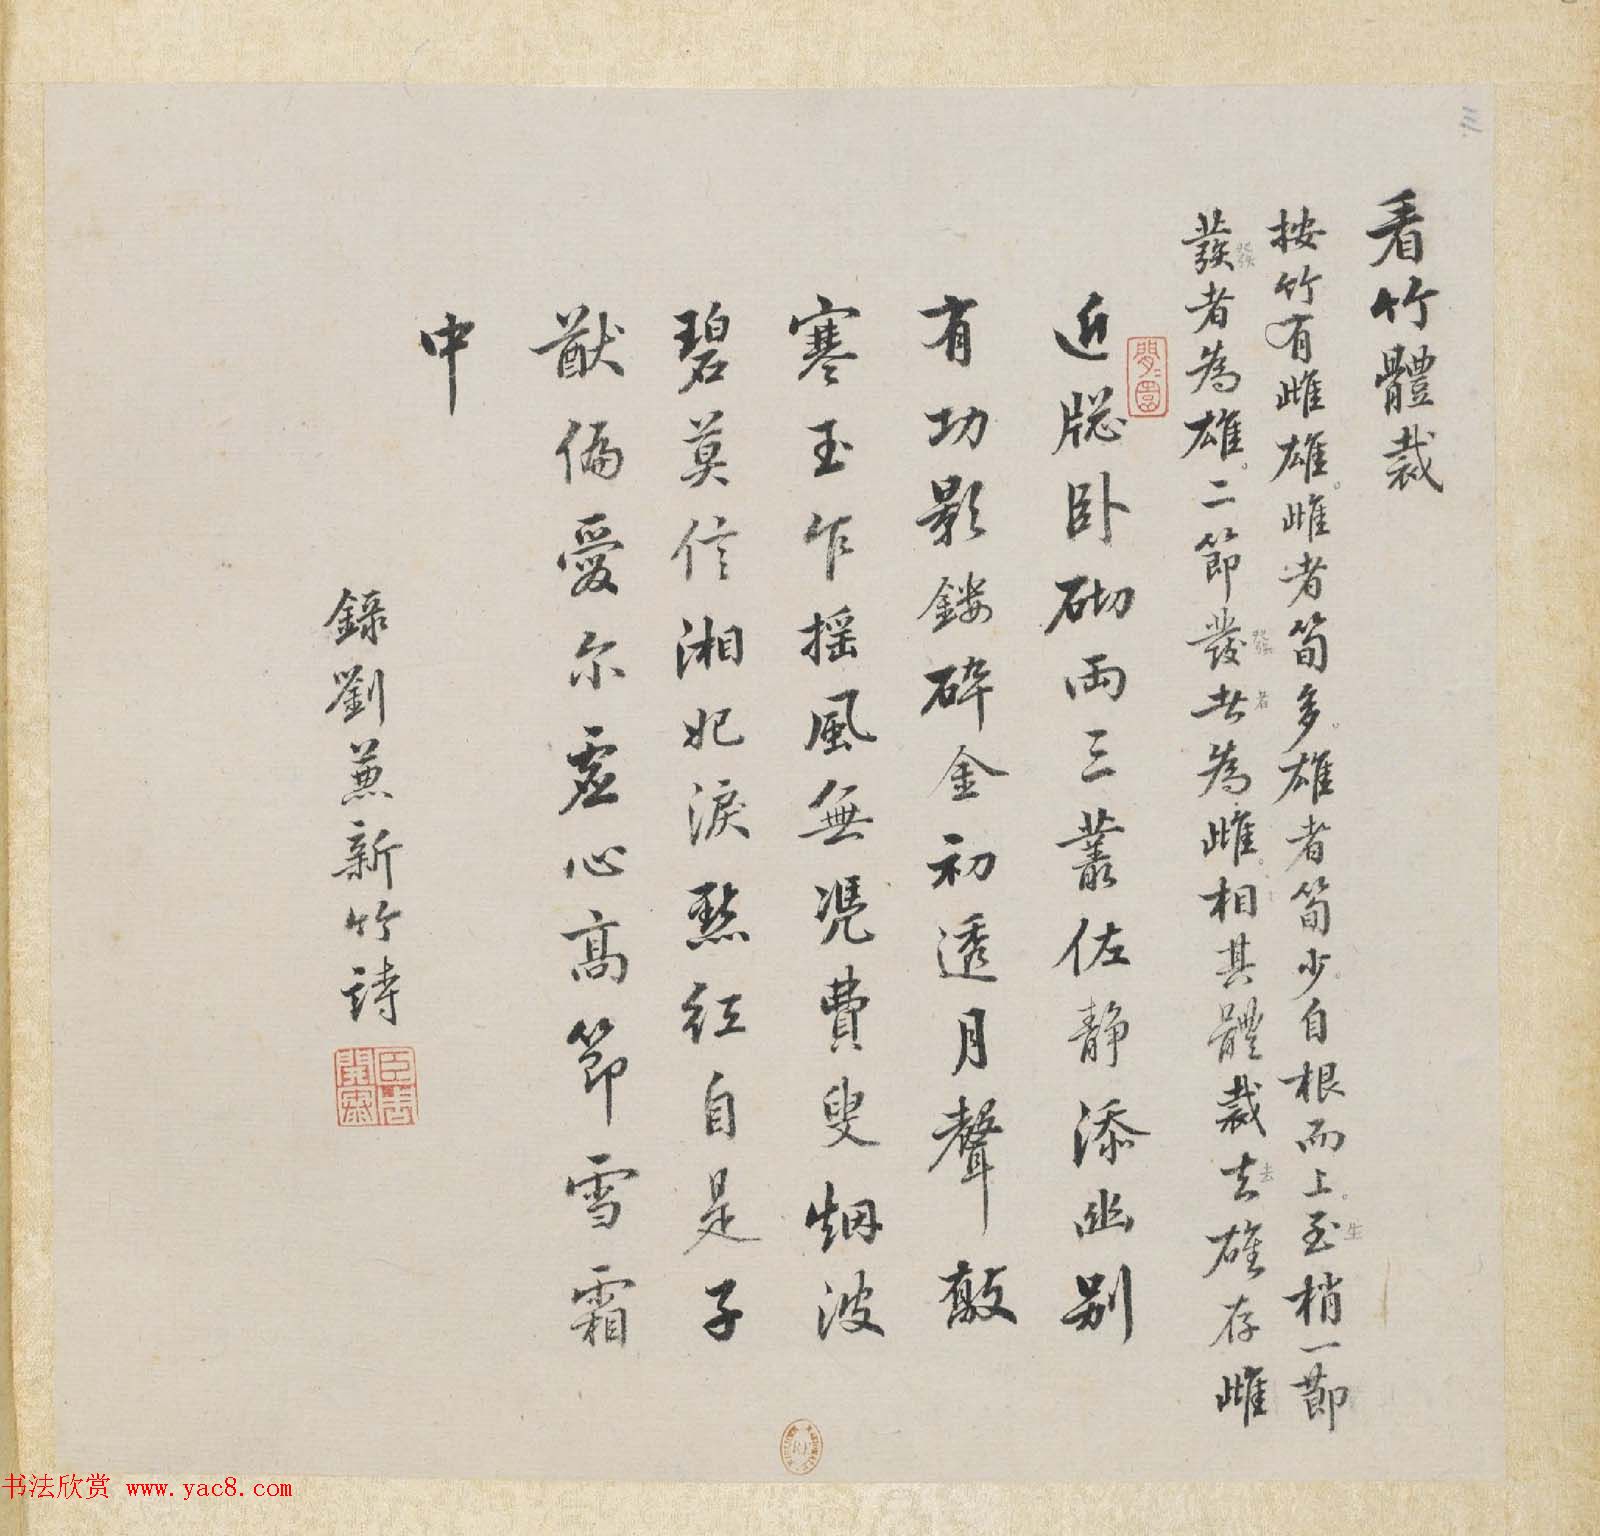 看竹體裁
按竹有雌雄。雌者筍多。雄者筍少。自根而上。至梢一節
發者為雄。二節發者為雌。相其體裁去雄存雌
近牕卧砌兩三叢佐静添幽别
有功影鏤碎金初透月聲敲
寒玉乍摇風無凴費叟烟波
碧莫信湘妃淚㸃红自是子
猷偏愛尔虚心髙節雪霜
中
錄劉兼新竹詩
三
生
去
書法欣赏 www.yac8.com